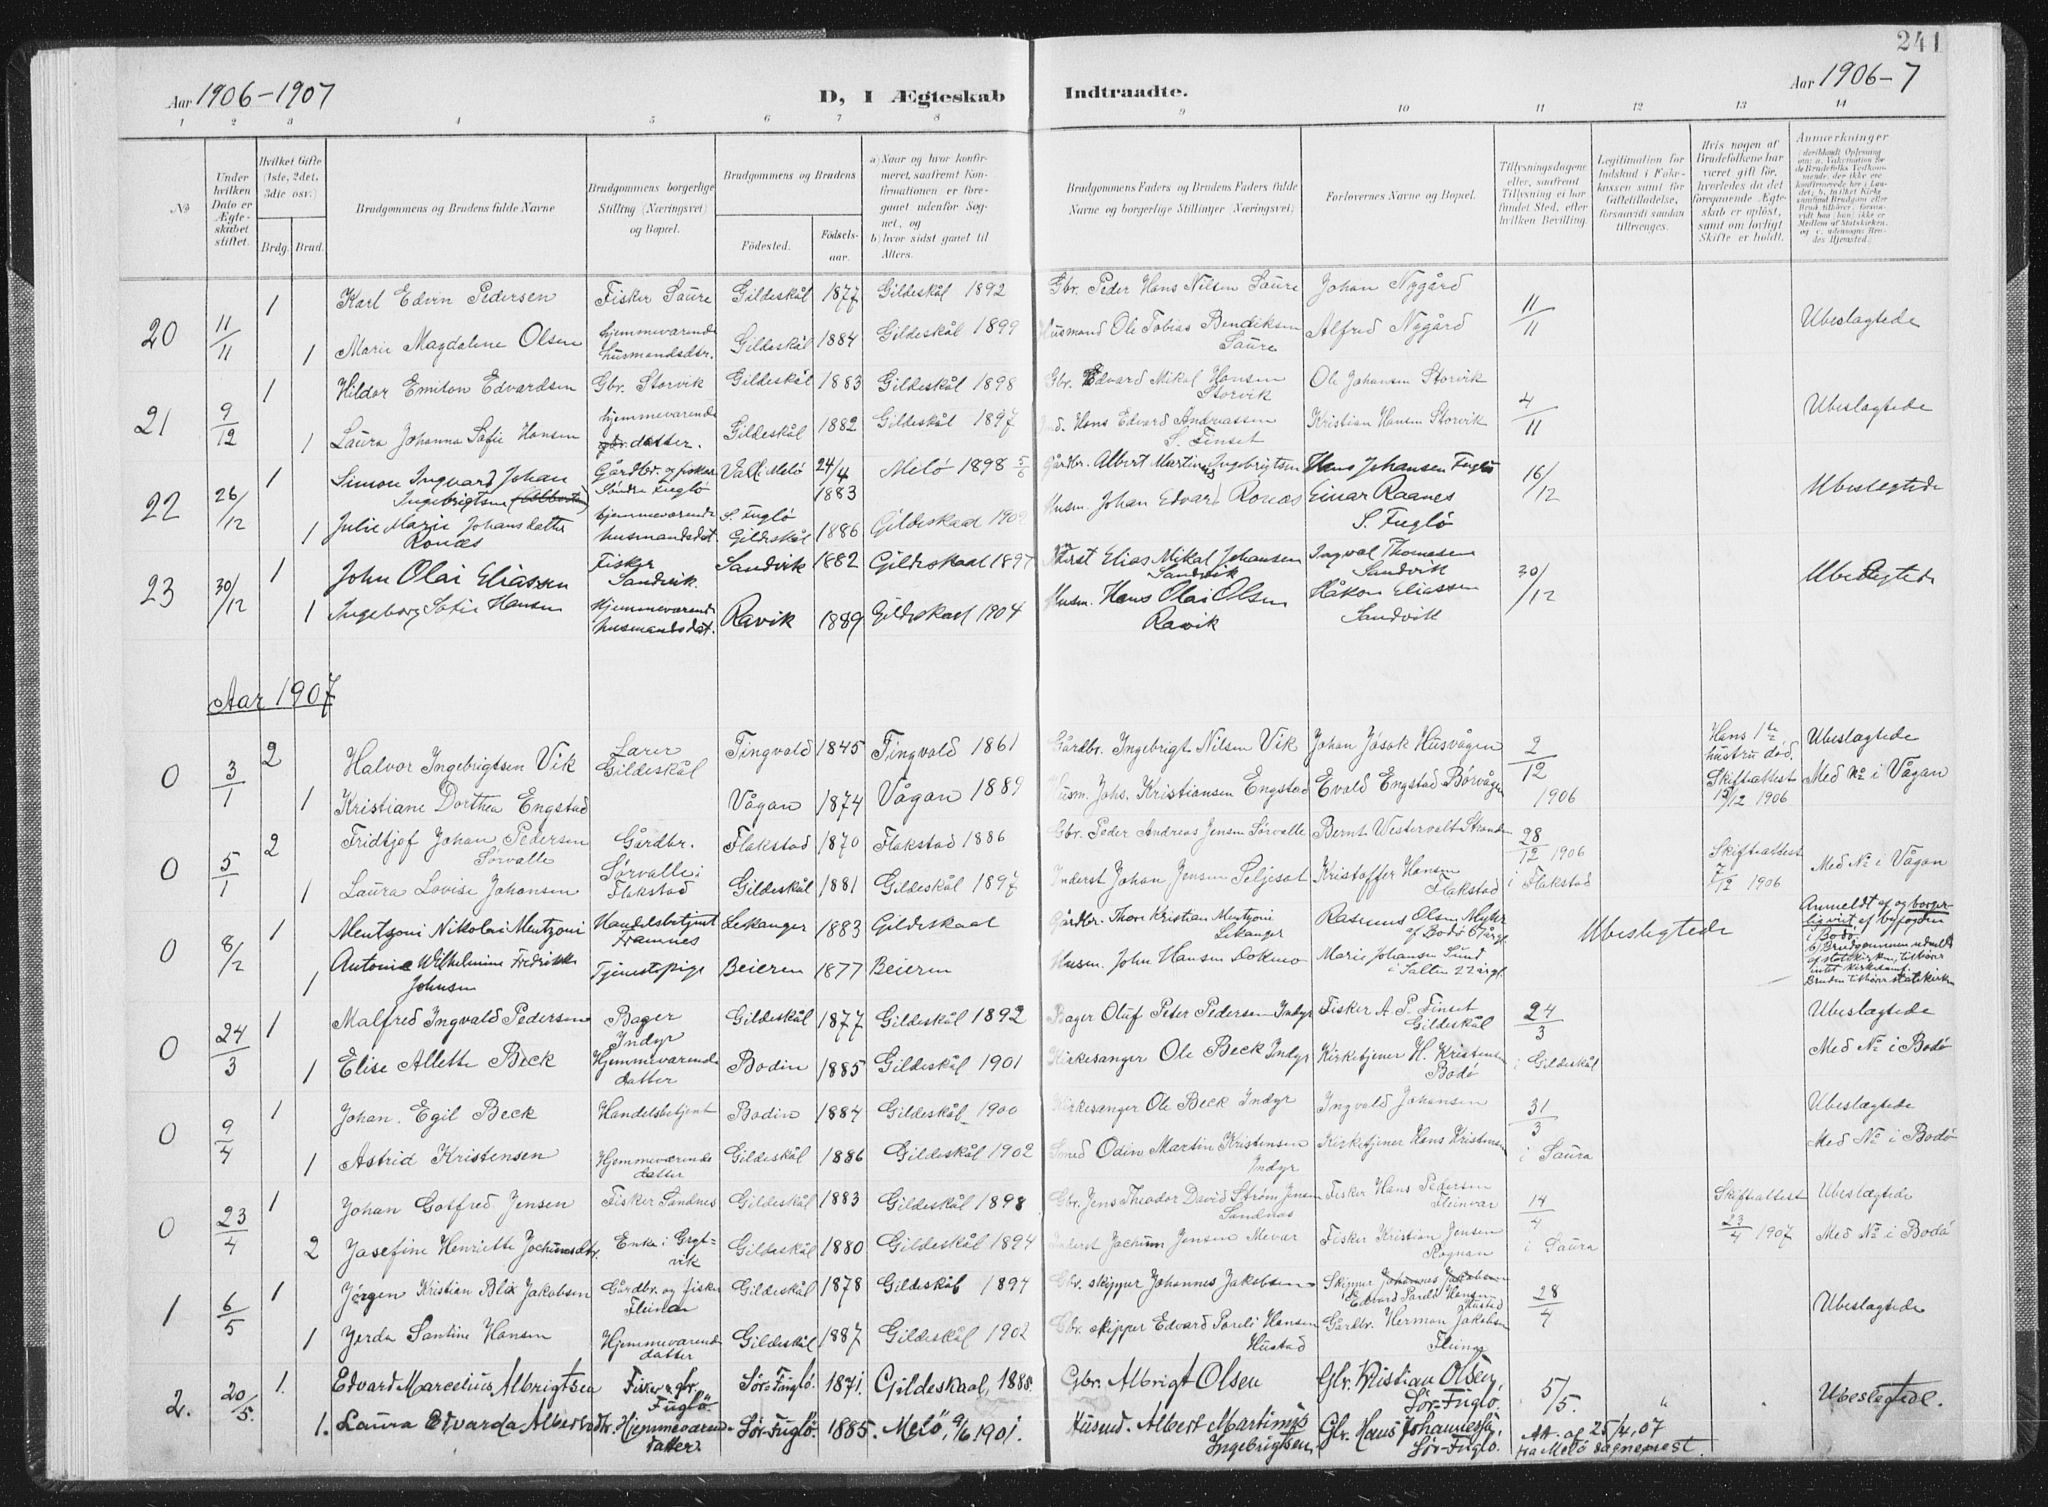 241
Aar 1906-1907
D, I Ægteskab
Indtraadte.
Aar 1906-7
1 2 3 4 5 6 7 8 9 10 11 12 13 14
No
Under hvilken Dato er Ægteskabet stiftet.
Hvilket Gifte (1ste, 2det, 3die osv.)
Brdg. Brud.
Brudgommens og Brudens fulde Navne
Brudgommens borgerlige Stilling (Næringsvei) og Bopæl.
Brudgommens og Brudens
Fødested.
Fødselsaar.
a) Naar og hvor konfirmeret, saafremt Konfirmationen er foregaaet udenfor Sognet, og
b) hvor sidst gaaet til Alters.
Brudgommens Faders og Brudens Faders fulde Navne og borgerlige Stillinger (Næringsvei)
Forlovernes Navne og Bopæl.
Tillysningsdagene eller, saafremt Tillysning ei har fundet Sted, efter hvilken Bevilling.
Legitimation for Indskud i Enkekassen samt for Giftetilladelse, forsaavidt saadan tiltrænges.
Hvis nogen af Brudefolkene har været gift før, hvorledes da det foregaaende Ægteskab er opløst, samt om lovligt Skifte er holdt.
Anmærkninger
20 11/11 1 Karl Edvin Pedersen Fisker Saure Gildeskål 1877 Gildeskål 1892 Gbr. Peder Hans Nilsen Saure Johan Nygård 11/11 Ubeslægtede
1 Marie Magdalene Olsen hjemmeværende husmandsdtr. Gildeskål 1884 Gildeskål 1899 Husmand Ole Tobias Bendiksen Saure Alfred Nygård
21 9/12 1 Hildor Emiton Edvardsen Gbr. Storvik Gildeskål 1883 Gildeskål 1898 Gbr. Edvard Mikal Hansen Storvik Ole Johansen Storvik 4/11 Ubeslagtede
1 Laura Johanna Sofie Hansen hjemmeværende gbr. datter. Gildeskål 1882 Gildeskål 1897 Hans Edvard Andreassen S. Finset Kristian Hansen Storvik
22 26/12 1 Simon Ingvard Johan Ingebrigtsen Gårdbr. og fisker Søndre Fuglø Vall Melø 24/4 1883 Melö 1898 5/6 Gårdbr. Albert Martinus Ingebrigtsen Hans Johansen Fuglø 16/12 Ubeslegtede
1 Julie Marie Johansdatter Ronæs hjemmeværende husmandsdat. S. Fuglø Gildeskål 1886 Gildeskaal 1902 Husm. Johan Edvard Ronæs Einar Raanes S. Fuglø
23 30/12 1 John Olai Eliassen Fisker Sandvik. Sandvik 1882 Gildeskaal 1897 Elias Mikal Johansen Sandvik Ingval Thomasen Sandvik 30/12 Ubeslegtede
1 Ingeborg Sofie Hansen Hjemmeværende husmandsdat. Ravik 1889 Gildeskaal 1904 Husm. Hans Olai Olsen Ravik Håkon Eliassen Sandvik
Aar 1907
0 3/1 2 Halvor Ingebrigtsen Vik Lærer Gildeskål Tingvold 1845 Tingvold 1861 Gårdbr. Ingebrigt Nilsen Vik Johan Jósok Husvågen 2/12 1906 Hans 1te hustru død. Skifteattest 13/12 1906 Ubeslægtede Med No i Vågan
1 Kristiane Dorthea Engstad Vågan 1874 Vågan 1889 Husm. Johs. Kristiansen Engstad Evald Engstad Børvågen
0 5/1 2 Fridtjof Johan Pedersen Sørvalle Gårdbr. Sørvalle i Flakstad Flakstad 1870 Flakstad 1886 Gbr. Peder Andreas Jensen Sørvalle Bernt Westervalt Stranden 28/12 1906 i Flakstad Skifteattest 7/12 1906 Med No i Vågan
1 Laura Lovise Johansen Gildeskål 1881 Gildeskål 1897 Inderst Johan Jensen Seljesat Kristoffer Hansen Flakstad
0 8/2 1 Mentzoni Nikolai Mentzoni Handelsbetjent Framnes Lekanger 1883 Gildeskaal Gårdbr. Thore Kristian Mentzoni Lekanger Rasmus Olsen Myhr af Bodø Ubeslegtede Anmeldt af og borgerlig viet af byfogden i Bodø. b) Brudgommen udmeldt af statskirken, tilhører intet kirkesamf. Bruden tilhører statskirken
1 Antonie Wilhelmine Fredrikke Johnsen Tjenestepige Beieren 1877 Beieren Husm. John Hansen Dokmo Marie Johansen Sund i Salten 22 årgl.
0 24/3 1 Malfred Ingvald Pedersen Bager Indyr Gildeskål 1877 Gildeskål 1892 Bager Oluf Peter Pedersen Indyr Fisker A. P. Finset Gildeskål 24/3 i Gildeskål Ubeslægtede Med No i Bodø
1 Elise Allette Beck Hjemmeværende datter Bodin 1885 Gildeskål 1901 Kirkesanger Ole Beck Indyr Kirketjener H. Kristensen Bodø
0 9/4 1 Johan Egil Beck Handelsbetjent Bodin 1884 Gildeskål 1900 Kirkesanger Ole Beck Indyr Ingvald Johansen 31/3 i Saura Ubeslægtede Med No i Bodø
1 Astrid Kristensen Hjemmeværende datter Gildeskål 1886 Gildeskål 1902 Odin Martin Kristensen Indyr Kirketjener Hans Kristensen
0 23/4 1 Johan Gotfred Jensen Fisker Sandnes Gildeskål 1883 Gildeskål 1898 Gbr. Jens Theodor David Strøm Jensen Sandnæs Fisker Hans Pedersen Fleinvær 14/4 i Saura Skifteattest 23/4 1907 Ubeslægtede Med No i Bodø
2 Josefine Henriette Jochumsdtr. Enke i Grytvik Gildeskål 1880 Gildeskål 1894 Inderst Jochum Jensen Mevær Fisker Kristian Jensen Rognan
1 6/5 1 Jørgen Kristian Blix Jakobsen Gårdbr. og fisker Fleinvær Gildeskål 1878 Gildeskål 1894 Gbr. skipper Johannes Jakobsen Skipper Johannes Jakobsen Edvard Parelì Hansen Hustad 28/4 Ubeslægtede
1 Jerda Santine Hansen Hjemmeværende datter Gildeskål 1887 Gildeskål 1902 Gbr. skipper Edvard Parelì Hansen Hustad Gårdbr. Herman Jakobsen Fleinvær
2. 20/5. 1. Edvard Marcelius Albrigtsen Fisker & gbr. Fuglö Sör-Fuglö. 1871. Gildeskaal, 1885. Gbr. Albrigt Olsen Gbr. Kristian Olsen, Sör-Fuglö. 5/5. " Ubeslegtede.
1. Laura Edvarda Albertsdtr. Hjemmeværende datter. Sör-Fuglö. 1885. Melö, 9/6 1901. Husmd. Albert Martinus Ingebrigtsen, Gbr. Hans Johannesen, Sör-Fuglö. Att. af 25/4, 07 fra Melö sogneprest.